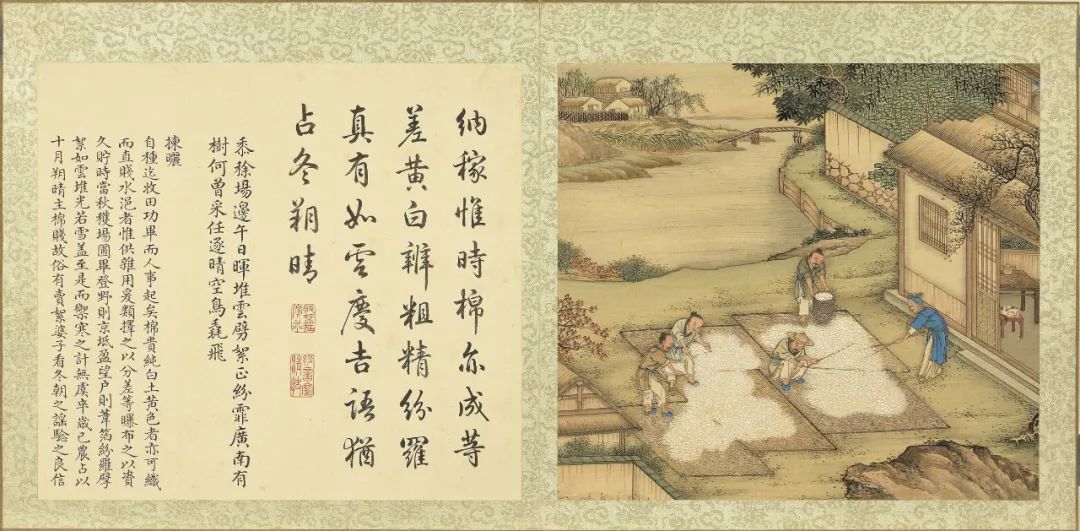 納稼惟時棉亦成䓁
差黄白辨粗精紛羅
真有如雲慶吉語猶
占冬朔晴
黍稌場邊午日暉堆雲劈絮正紛霏廣南有
樹何曾采任逐晴空鳥毳飛
揀曬
自種迄收田功畢而人事起矣棉貴純白土黄色者亦可織
而直賤水浥者惟供雜用爰類擇之以分差等曝布之以資
久貯時當秋穫場圃畢登野則京坻盈望户則葦箔紛羅擘
絮如雲堆光若雪盖至是而禦寒之計無虞卒歲已農占以
十月朔晴主棉賤故俗有賣絮婆子看冬朝之謡驗之良信